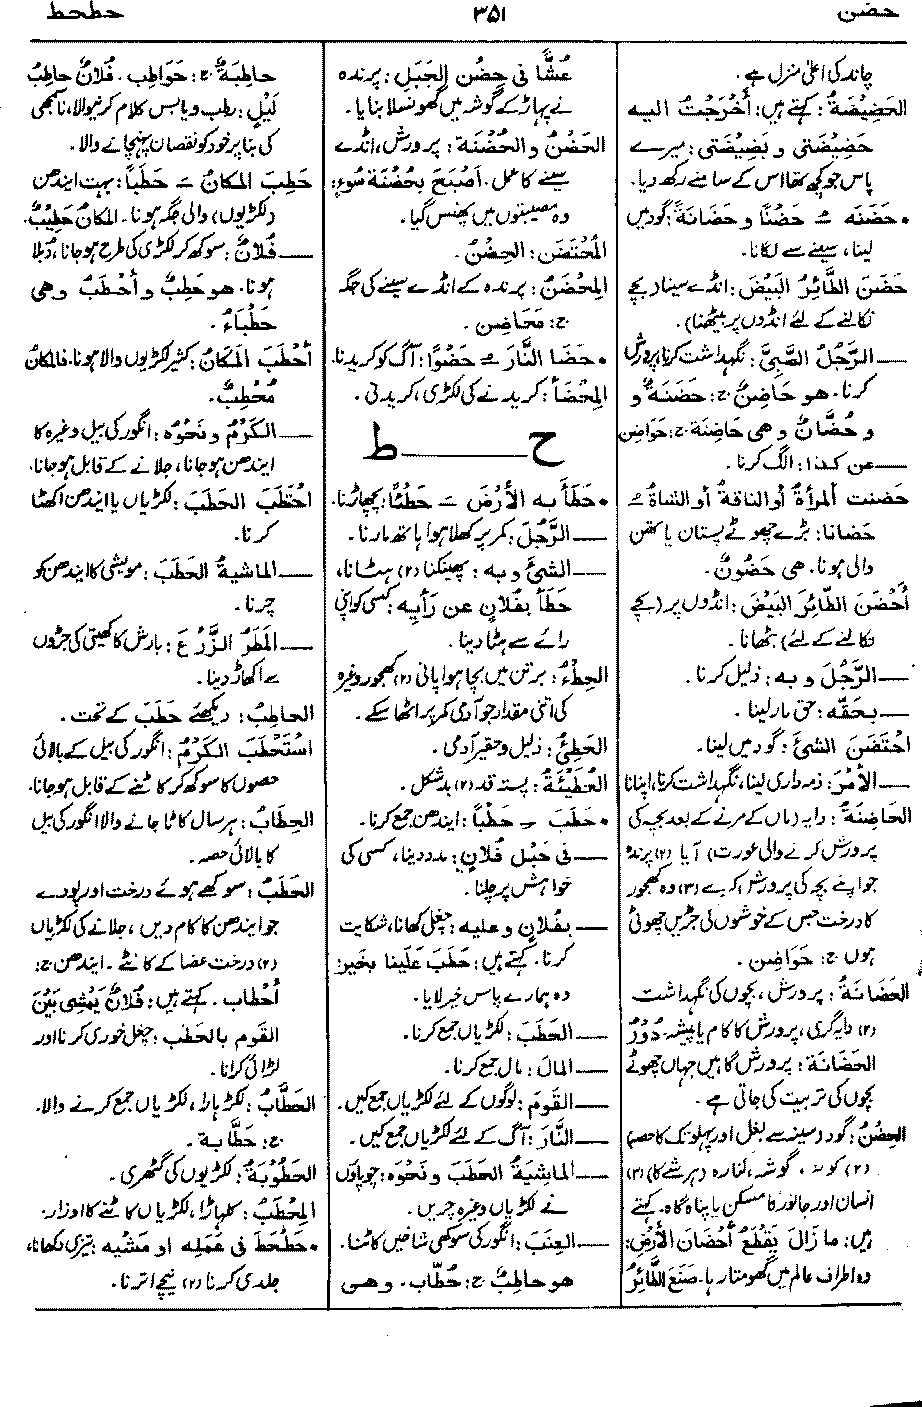 حضن
۳۵۱
حطحط
چاند کی اعلیٰ منزل ہے۔
الحَضِیضَةُ: کہتے ہیں: أَخْرَجْتُ الیه
حَضِیضَتی و بَضِیضَتی: میرے
پاس جو کچھ تھا اس کے سامنے رکھ دیا۔
• حَضَنَه ـُ حَضْنًا و حَضَانَةً: گود میں
لینا، سینے سے لگانا۔
حَضَنَ الطَّائِرُ البَیْضَ: انڈے سینا (بچے
نکالنے کے لئے انڈوں پر بیٹھنا)۔
ــــ الرَّجُلُ الصَّبِیَّ: نگہداشت کرنا، پرورش
کرنا۔ هو حَاضِنٌ ج: حَضَنَةٌ و
و حُضَّانٌ و هی حَاضِنَة ج: حَوَاضِن
ــــ عن کذا: الگ کرنا۔
حَضَنت المرأةُ أو الناقةُ أو الشاةُ ـُ
حَضانا: بڑے چھوٹے پستان یا تھن
والی ہونا۔ هی حَضُونٌ۔
أَحْضَنَ الطَّائِرُ البَیْضَ: انڈوں پر (بچے
نکالنے کے لئے) بٹھانا۔
ــــ الرَّجُلَ و به: ذلیل کرنا۔
ــــ بحَقِّه: حق مار لینا۔
احْتَضَنَ الشئَ: گود میں لینا۔
ــــ الأمْرَ: ذمہ داری لینا، نگہداشت کرنا، اپنانا
الحَاضِنَةُ: دایہ (ماں کے مرنے کے بعد بچہ کی
پرورش کرنے والی عورت) آیا (۲) پرندہ
جو اپنے بچہ کی پرورش کرے (۳) وہ کھجور
کا درخت جس کے خوشوں کی جڑیں چھوٹی
ہوں ج: حَوَاضِن۔
الحَضَانَةُ: پرورش، بچوں کی نگہداشت
(۲) دایہ گری، پرورش کا کام یا پیشہ دُوْرُ
الحَضَانَة: پرورش گاہیں جہاں چھوٹے
بچوں کی تربیت کی جاتی ہے۔
الحِضْنُ: گود (سینہ سے بغل اور پہلو تک کا حصہ)
(۲) کونہ، گوشہ، کنارہ (ہر شے کا) (۳)
انسان اور جانور کا مسکن یا پناہ گاہ۔ کہتے
ہیں: ما زَالَ یَقْطَعُ أَحْضَانَ الأرْضِ:
وہ اطراف عالم میں گھومتا رہا۔ صَنَعَ الطَّائِرُ
عُشًّا فی حِضْنِ الجَبَلِ: پرندہ
نے پہاڑ کے گوشہ میں گھونسلا بنایا۔
الحَضْنُ و الحُضْنَة: پرورش، انڈے
سینے کا عمل۔ أَصْبَحَ بِحُضْنَةِ سُوءٍ:
وہ مصیبتوں میں پھنس گیا۔
المُحْتَضَن: الحِضْنُ۔
المِحْضَنُ: پرندہ کے انڈے سینے کی جگہ
ج: مَحَاضِن۔
• حَضَا النَّارَ ـُ حَضْوًا: آگ کو کریدنا۔
المِحْضَأ: کریدنے کی لکڑی، کریدنی۔
ح ــــــــ ط
• حَطَأَ به الأرْضَ ـَ حَطْئًا: پچھاڑنا۔
ــــ الرَّجُلَ: کمر پر کھلا ہوا ہاتھ مارنا۔
ــــ الشئَ و به: پھینکنا (۲) ہٹانا،
حَطَأَ بفُلَانٍ عن رَأْیِه: کسی کو اپنی
رائے سے ہٹا دینا۔
الحِطْءُ: برتن میں بچا ہوا پانی (۲) کھجور وغیرہ
کی اتنی مقدار جو آدمی کمر پر اٹھا سکے۔
الحَطِئُ: ذلیل و حقیر آدمی۔
الحُطَیْئَةُ: پستہ قد (۲) بدشکل۔
• حَطَبَ ـِ حَطْباً: ایندھن جمع کرنا۔
ــــ فی حَبْلِ فُلَانٍ: مدد دینا، کسی کی
خواہش پر چلنا۔
ــــ بفُلَانٍ و علیه: چغلی کھانا، شکایت
کرنا۔ کہتے ہیں: حَطَبَ عَلَینا بخَیرٍ
وہ ہمارے پاس خبر لایا۔
ــــ الحَطَبَ: لکڑیاں جمع کرنا۔
ــــ المالَ: مال جمع کرنا۔
ــــ القَومَ: لوگوں کے لئے لکڑیاں جمع کیں۔
ــــ النَّارَ: آگ کے لئے لکڑیاں جمع کیں۔
ــــ الماشِیَةُ الحَطَبَ و نَحْوَه: چوپاؤں
نے لکڑیاں وغیرہ چریں۔
ــــ العِنَبَ: انگور کی سوکھی شاخیں کاٹنا۔
هو حاطِبٌ ج: حُطَّاب۔ و هی
حاطِبَةٌ ج: حَوَاطِب۔ فُلانٌ حاطِبُ
لَیْلٍ: رطب و یابس کلام کرنیوالا، ناسمجھی
کی بنا پر خود کو نقصان پہنچانے والا۔
حَطِبَ المَکانُ ـَ حَطَبًا: بہت ایندھن
(لکڑیوں) والی جگہ ہونا۔ المکانُ حَطِیْبٌ۔
ــــ فُلَانٌ: سوکھ کر لکڑی کی طرح ہو جانا، دُبلا
ہونا۔ هو حَطِبٌ و أحْطَبُ و هی
حَطْباءُ۔
أحْطَبَ المَکَانُ: کثیر لکڑیوں والا ہونا۔ فالمکانُ
مُحْطِبٌ۔
ــــ الکَرْمُ و نَحْوُه: انگور کی بیل وغیرہ کا
ایندھن ہو جانا، جلانے کے قابل ہو جانا۔
احْتَطَبَ الحَطَبَ: لکڑیاں یا ایندھن اکھٹا
کرنا۔
ــــ الماشِیَةُ الحَطَبَ: مویشی کا ایندھن کو
چرنا۔
ــــ المَطَرُ الزَّرْعَ: بارش کا کھیتی کی جڑوں
سے اکھاڑ دینا۔
الحاطِبُ: دیکھئے حَطَبَ کے تحت۔
اسْتَحْطَبَ الکَرْمُ: انگور کی بیل کے بالائی
حصوں کا سوکھ کر کاٹنے کے قابل ہو جانا۔
الحِطَابُ: ہر سال کاٹا جانے والا انگور کی بیل
کا بالائی حصہ۔
الحَطَبُ: سوکھے ہوئے درخت اور پودے
جو ایندھن کا کام دیں، جلانے کی لکڑیاں
(۲) درخت عضا کے کانٹے۔ ایندھن ج:
أحْطاب۔ کہتے ہیں: فُلَانٌ یَمْشِی بَیْنَ
القَومِ بالحَطَبِ: چغل خوری کرنا اور
لڑائی کرانا۔
الحَطَّابُ: لکڑہارا، لکڑیاں جمع کرنے والا۔
ج: حَطَّابة۔
الحَطُوْبَةُ: لکڑیوں کی گٹھری۔
المِحْطَبُ: کلہاڑا، لکڑیاں کاٹنے کا اوزار۔
• حَطْحَطَ فی عَمَلِه او مَشْیِه: تیزی دکھانا،
جلدی کرنا (۲) نیچے اترنا۔